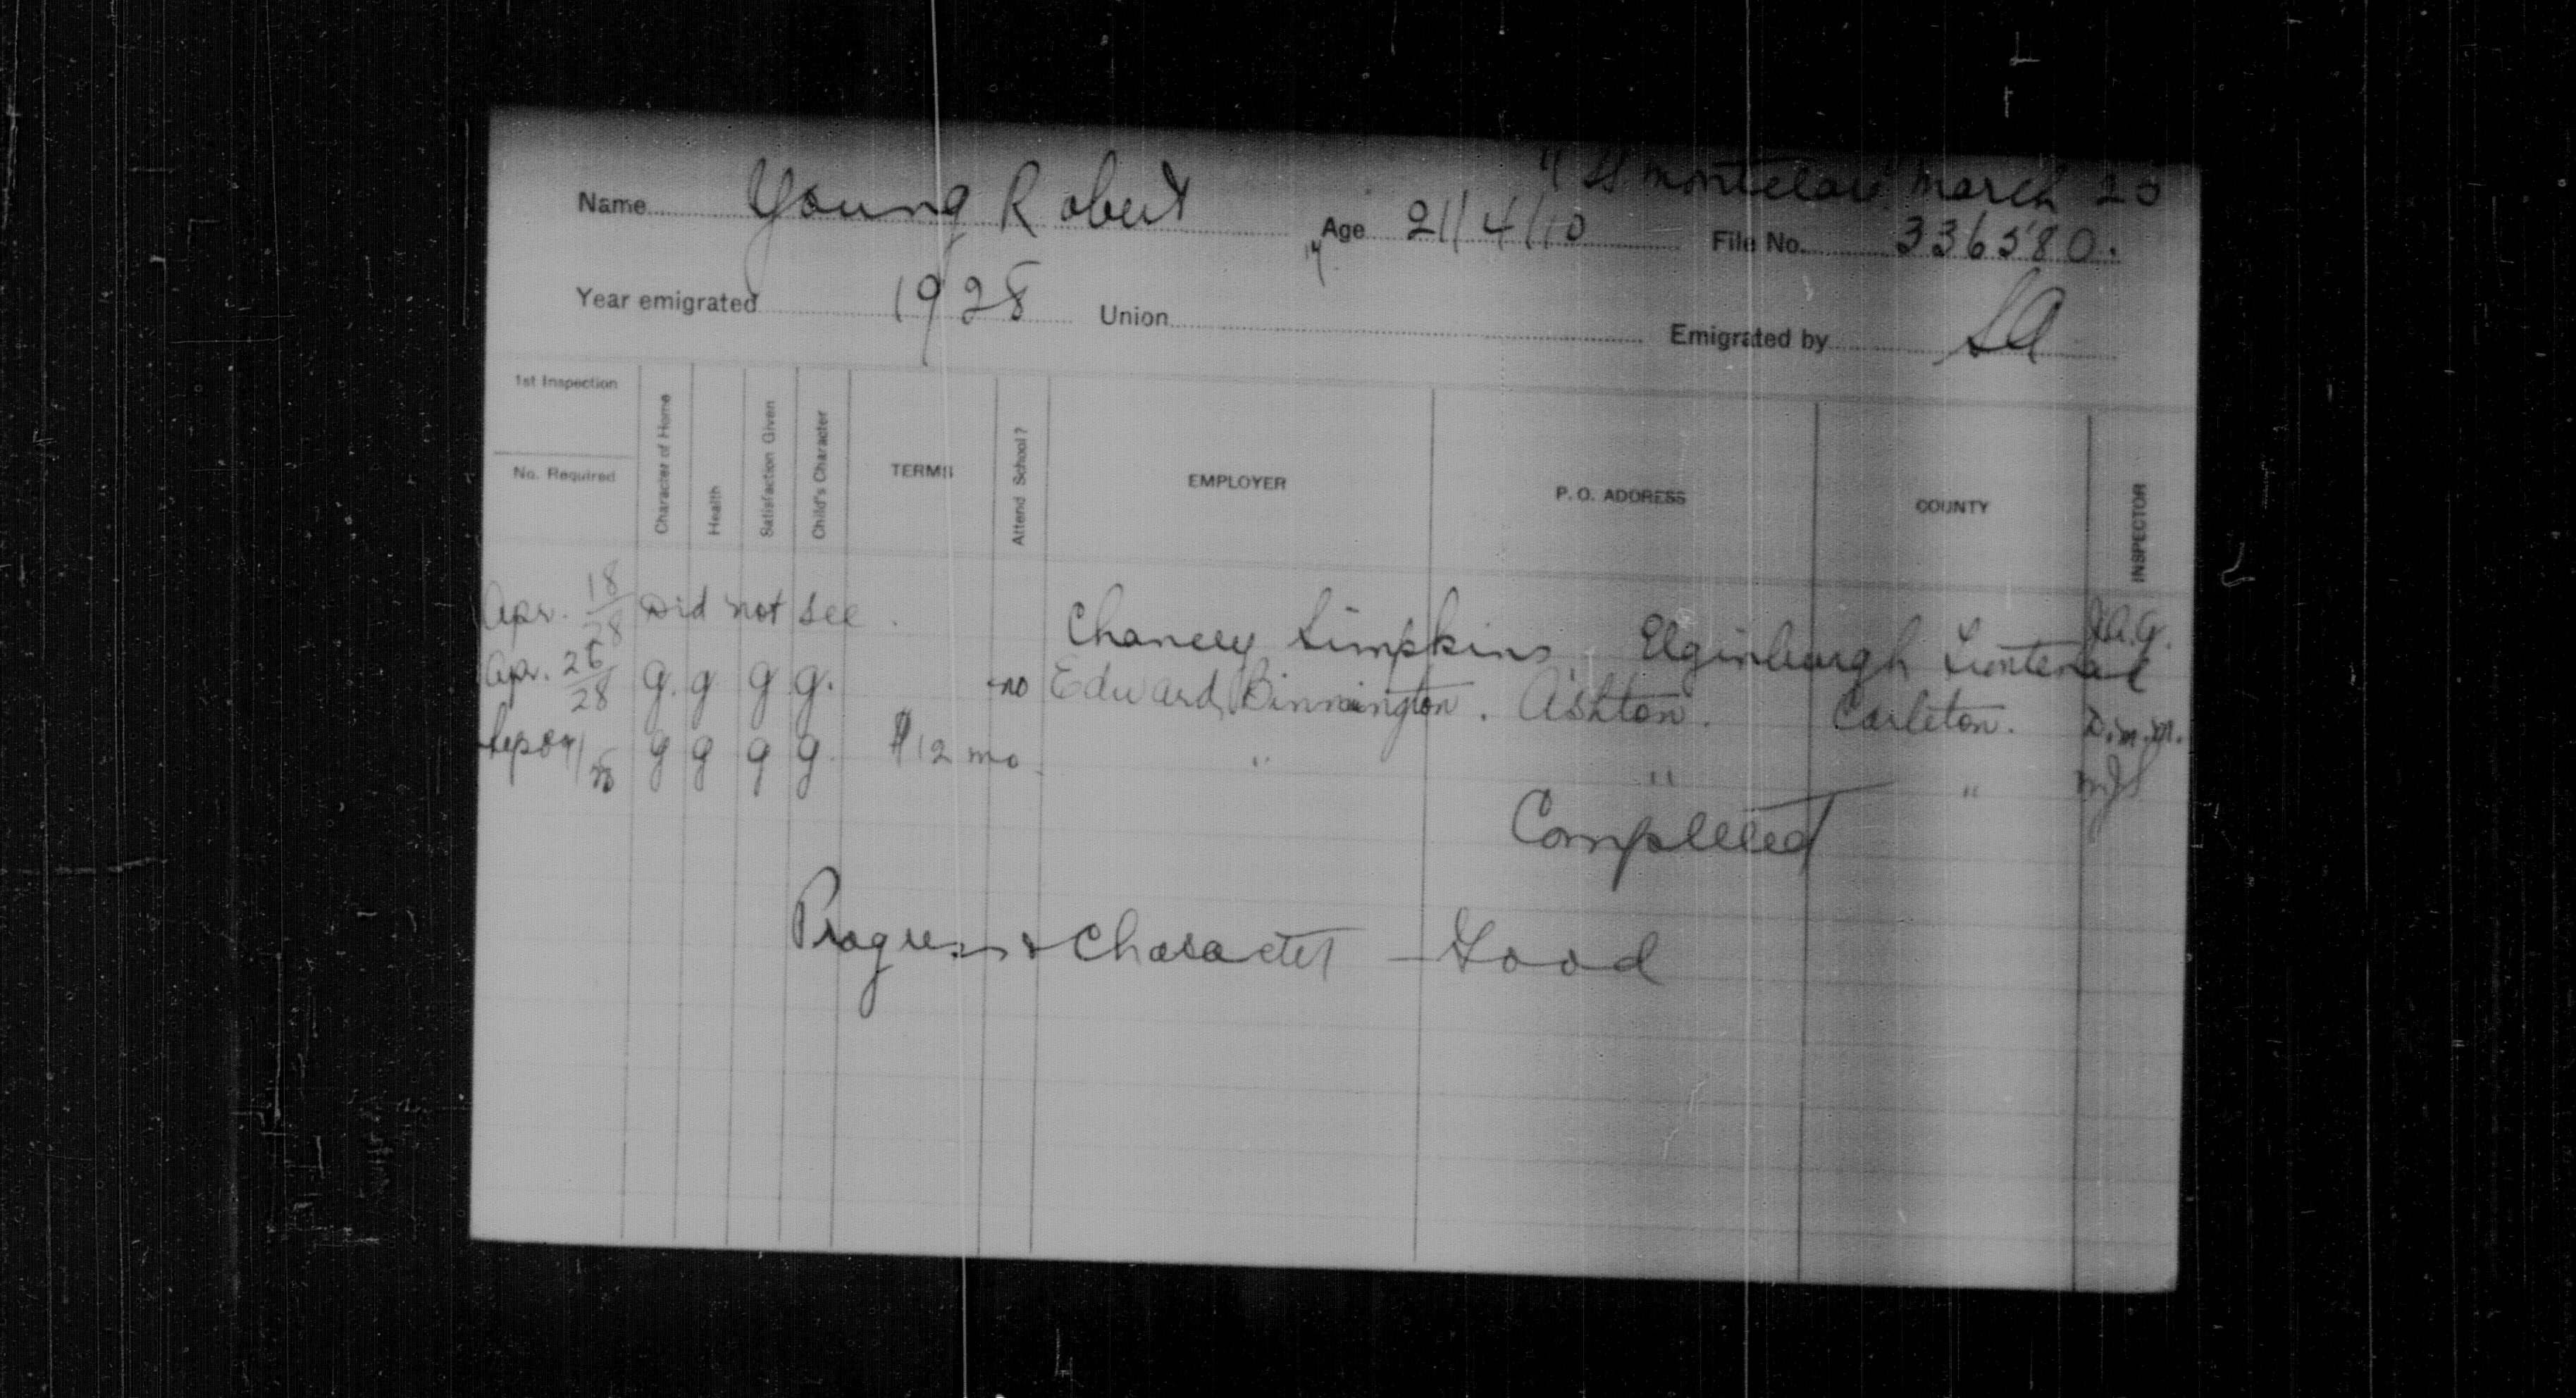 "SS Montclare" March 20
Name Young Robert Age 21/4/10 File No. 336580.
17
Year emigrated 1928 Union Emigrated by SA
1st Inspection
No. Required Character of Home Health Satisfaction Given Child's Character TERMS Attend School? EMPLOYER P. O. ADDRESS COUNTY INSPECTOR
Apr. 18/28 Did not see. Chancey Simpkins, Elginburgh Frontenac J.A.G.
Apr. 25/28 g. g g g. no Edward Binnington. Ashton. Carleton. D.M.M.
g g g g. $12 mo. " " "
Completed
Progress & Character - Good